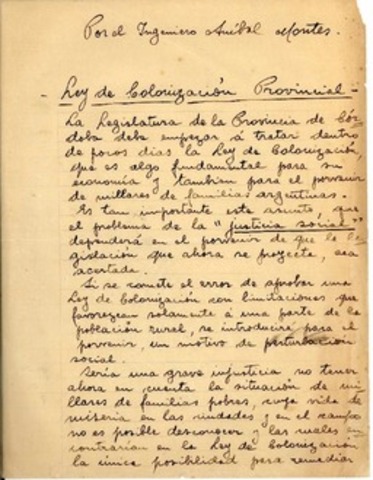 Por el Ingeniero Aníbal Montes.
- Ley de Colonización Provincial -
La Legislatura de la Provincia de Cór-
doba debe empezar á tratar dentro
de pocos días la Ley de Colonización,
que es algo fundamental para su
economía y tambien para el porvenir
de millares de familias argentinas.
Es tan importante este asunto, que
el problema de la "justicia social"
dependerá en el porvenir de que la le-
gislación que ahora se proyecte, sea
acertada.
Si se comete el error de aprobar una
Ley de Colonización con limitaciones que
favorezcan solamente á una parte de la
población rural, se introducirá para el
porvenir, un motivo de perturbación
social.
Sería una grave injusticia no tener
ahora en cuenta la situación de mi-
llares de familias pobres, cuya vida de
miseria en las ciudades y en el campo
no es posible desconocer y las cuales en-
contrarían en la Ley de Colonización
la única posibilidad para remediar